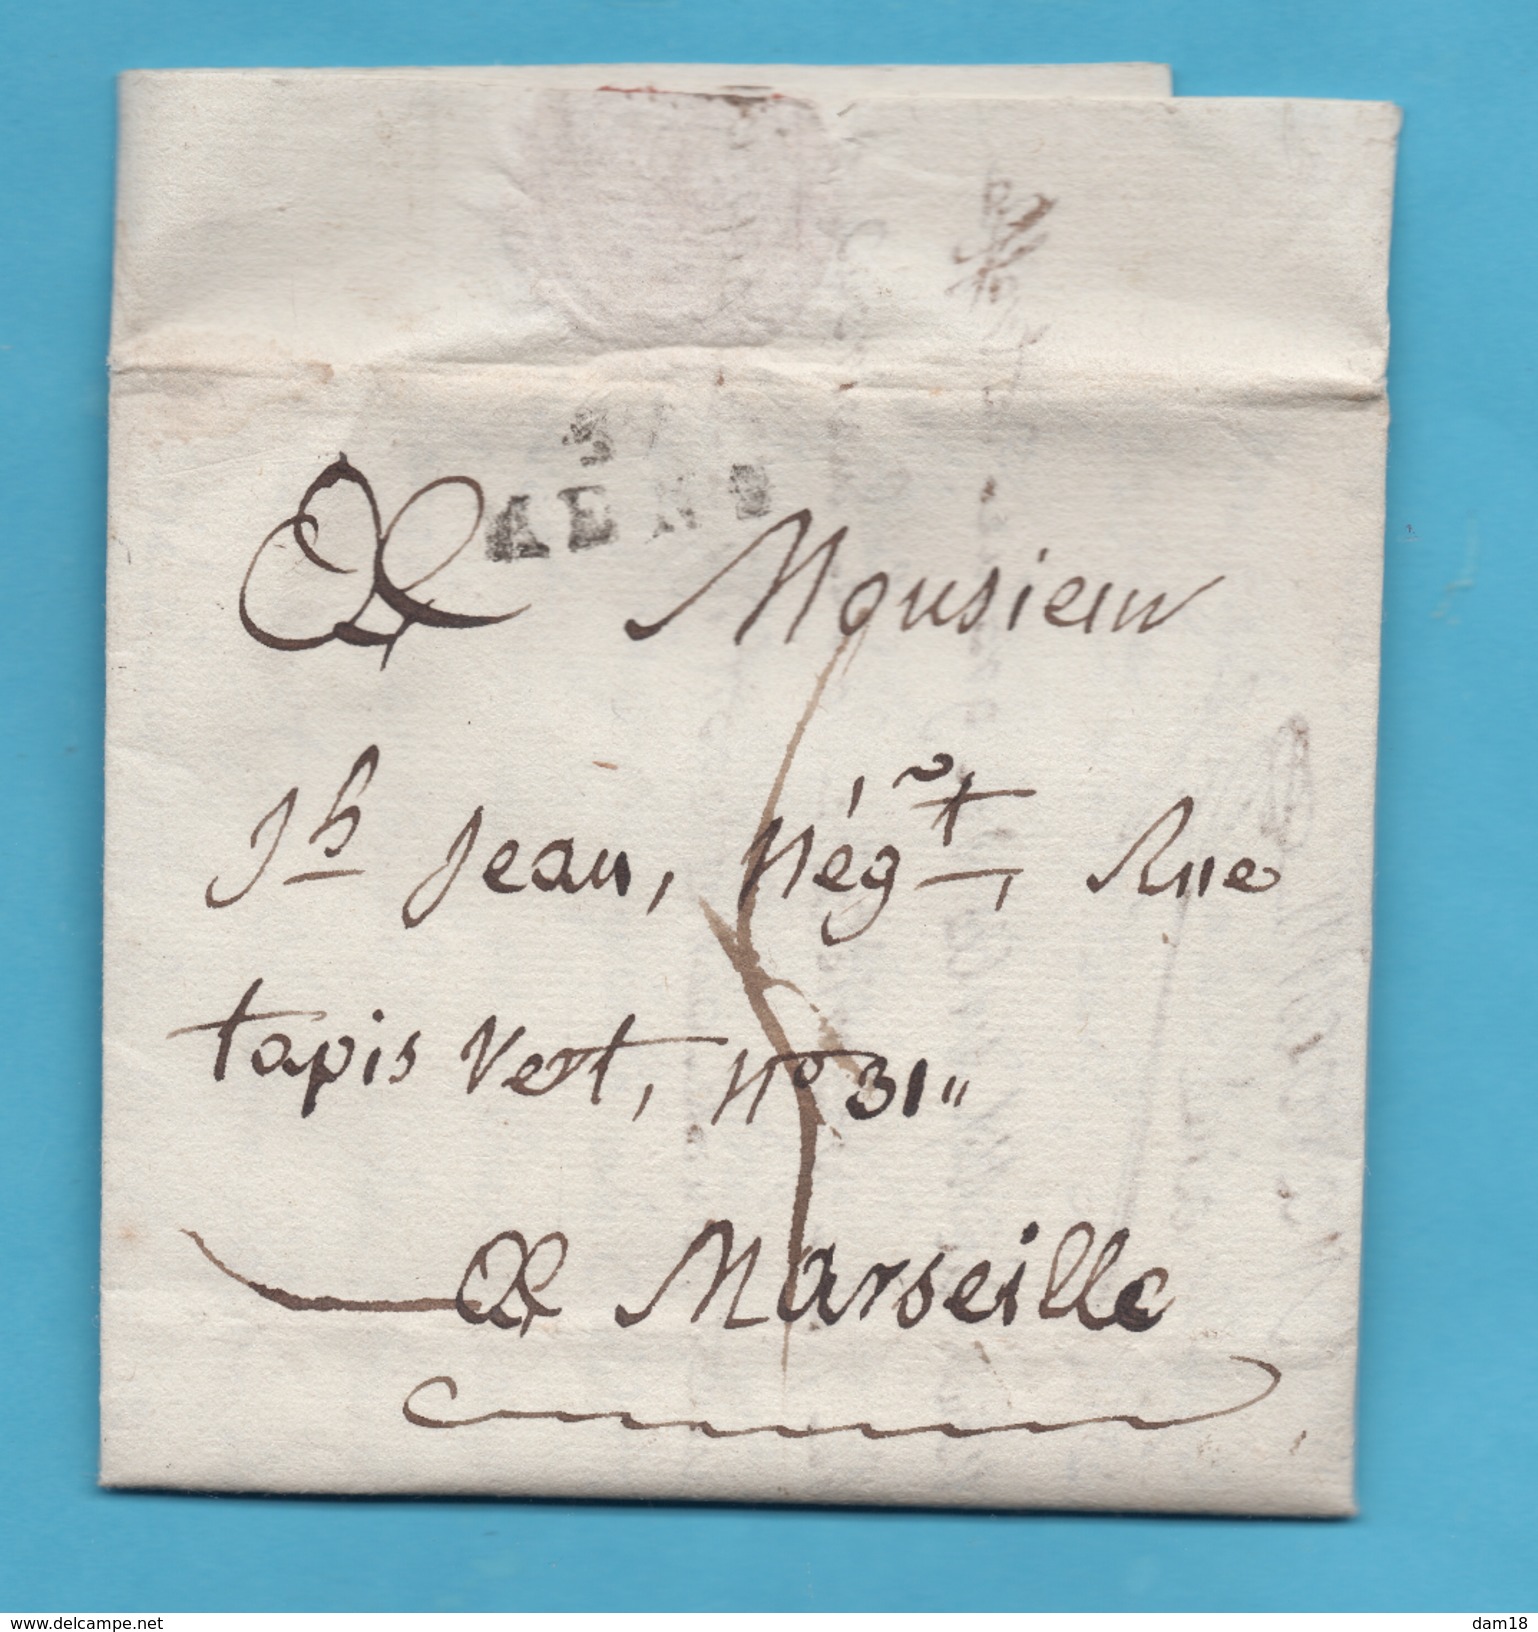 A Monsieur
Jh Jean, Négt, Rue
tapis Vert, No 31"
A Marseille
5
www.delcampe.net
dam18